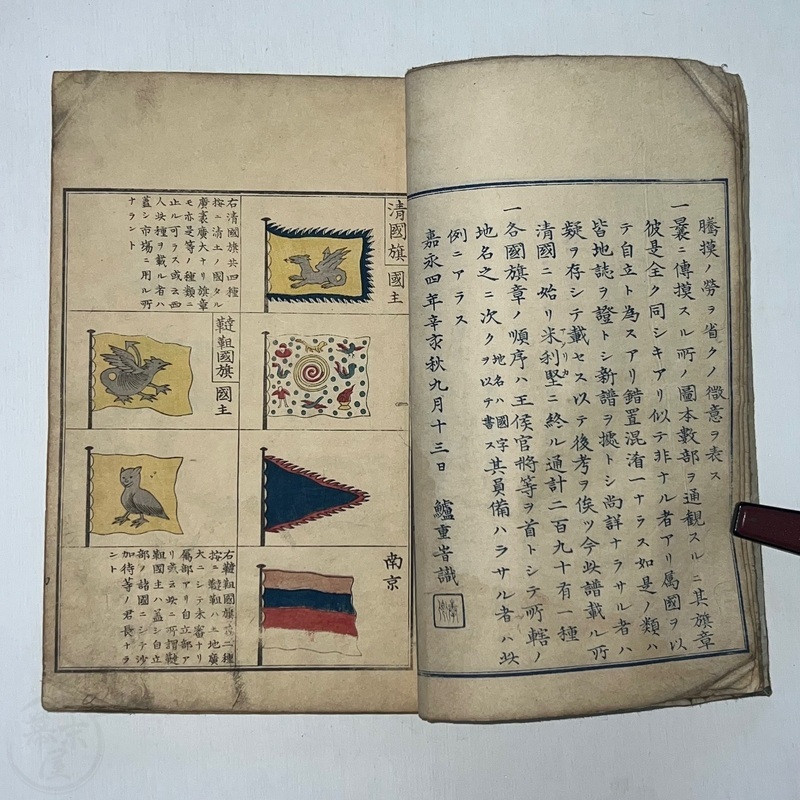 騰摸ノ勞ヲ省クノ微意ヲ表ス
一曩ニ傳摸スル所ノ圖本數部ヲ通観スルニ其旗章
彼是全ク同シキアリ似テ非ナル者アリ属國ヲ以
テ自立ト為スアリ錯置混淆一ナラス如是ノ類ハ
皆地誌ヲ證トシ新譜ヲ據トシ尚詳ナラサル者ハ
疑ヲ存シテ載セス以テ後考ヲ俟ツ今此譜載ル所
清國ニ始リ米利堅ニ終ル通計二百九十有一種
メリカ
一各國旗章ノ順序ハ王侯官將等ヲ首トシテ所轄ノ
地名之ニ次クヲ以テ書ス其員備ハラサル者ハ此
地名ハ國字
例ニアラス
嘉永四年辛亥秋九月十三日 鱸重峕識
清國旗 國主
南京
右清國旗共四種
按ニ清土ノ國タル
廣袤廣大ナリ旗章
モ亦是等ノ種類ニ
止ル可ラス或云西
人此種ヲ載ル者ハ
蓋シ市場ニ用ル所
ナラント
韃靼國旗 國主
右韃靼國旗二種
按ニ韃靼ハ土地廣
大ニシテ未審ナリ
属部アリ自立部ア
リ然ハ此ニ所謂韃
靼國主ハ蓋シ自立
部ノ諸國ニシテ沙
加待等ノ君長ナラ
ント
幕末屋